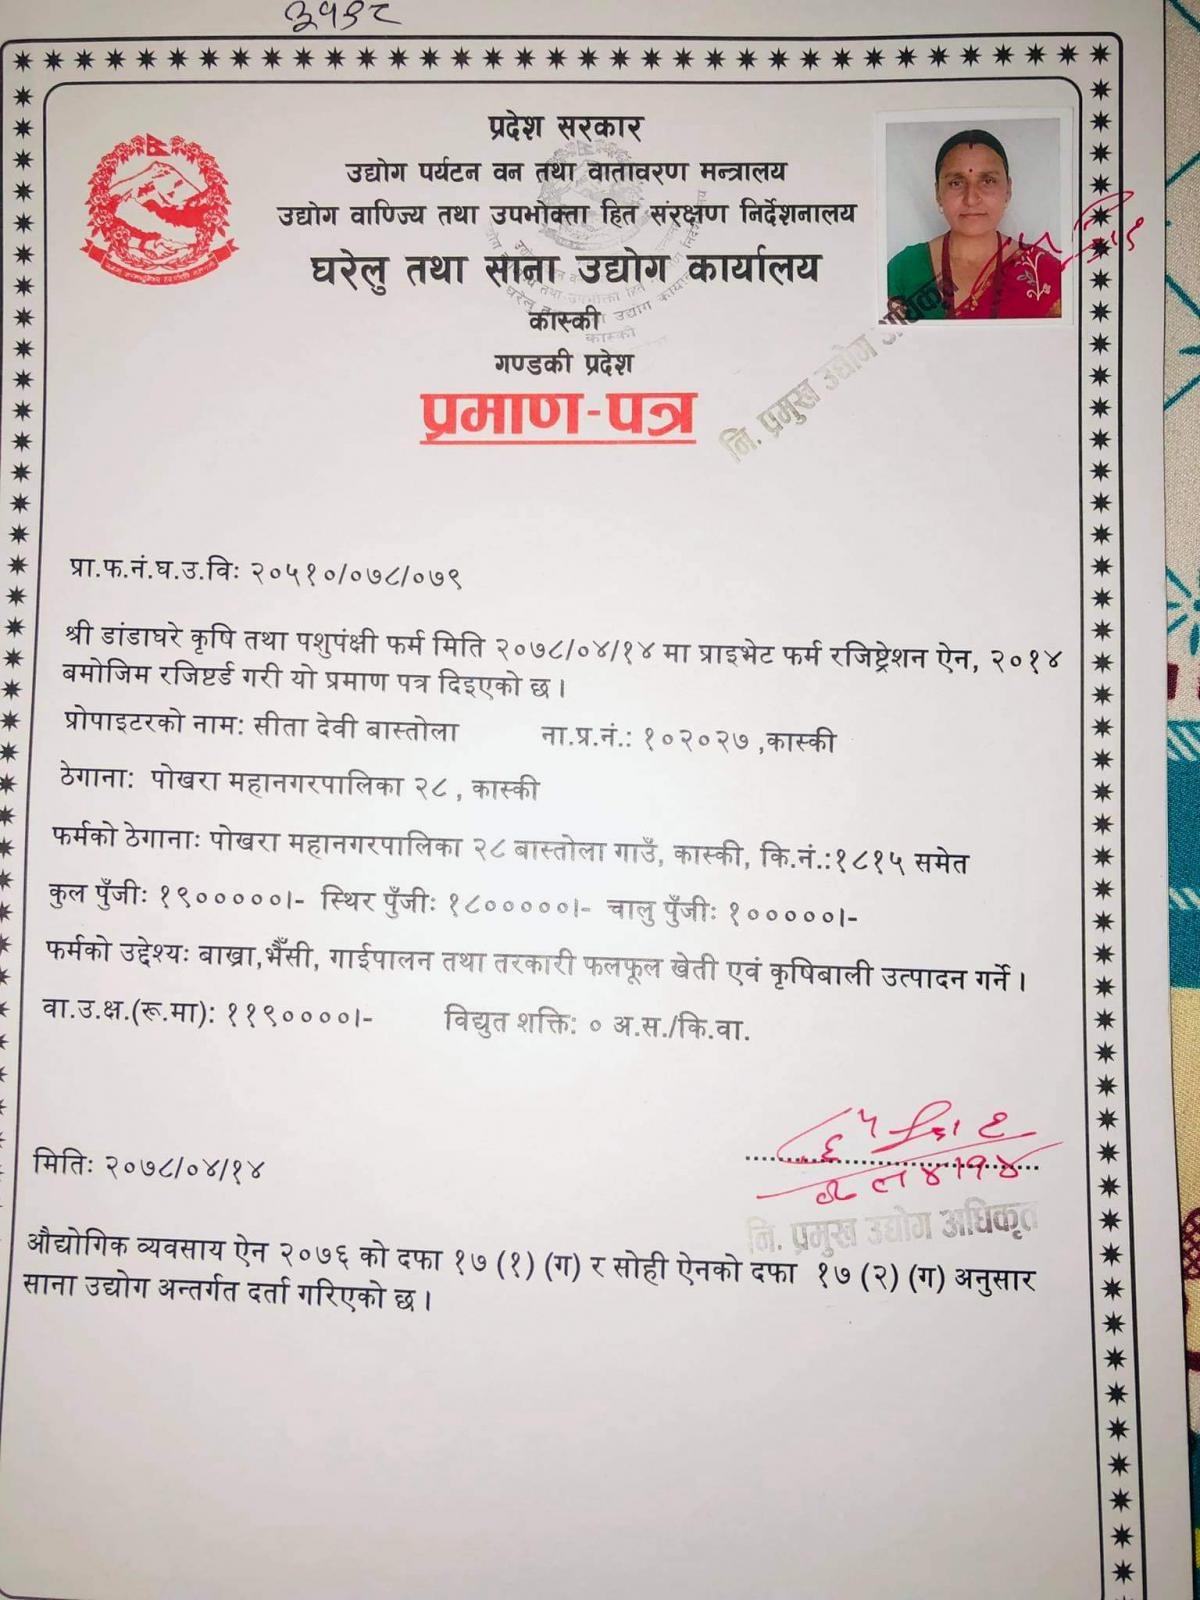 ३१३८
प्रदेश सरकार
उद्योग पर्यटन वन तथा वातावरण मन्त्रालय
उद्योग वाणिज्य तथा उपभोक्ता हित संरक्षण निर्देशनालय
घरेलु तथा साना उद्योग कार्यालय
कास्की
गण्डकी प्रदेश
प्रमाण-पत्र
नि. प्रमुख उद्योग अधिकृत
प्रा.फ.नं.घ.उ.विः २०५१०/०७८/०७९
श्री डांडाघरे कृषि तथा पशुपंक्षी फर्म मिति २०७८/०४/१४ मा प्राइभेट फर्म रजिष्ट्रेशन ऐन, २०१४
बमोजिम रजिष्टर्ड गरी यो प्रमाण पत्र दिइएको छ।
प्रोपाइटरको नाम: सीता देवी बास्तोला ना.प्र.नं.: १०२०२७ ,कास्की
ठेगानाः पोखरा महानगरपालिका २८ , कास्की
फर्मको ठेगानाः पोखरा महानगरपालिका २८ बास्तोला गाउँ, कास्की, कि.नं.:१८१५ समेत
कुल पुँजीः १९०००००।- स्थिर पुँजीः १८०००००।- चालु पुँजीः १०००००।-
फर्मको उद्देश्यः बाख्रा,भैँसी, गाईपालन तथा तरकारी फलफूल खेती एवं कृषिबाली उत्पादन गर्ने।
वा.उ.क्ष.(रू.मा): ११९००००।- विद्युत शक्ति: ० अ.स./कि.वा.
मितिः २०७८/०४/१४
नि. प्रमुख उद्योग अधिकृत
औद्योगिक व्यवसाय ऐन २०७६ को दफा १७ (१) (ग) र सोही ऐनको दफा १७ (२) (ग) अनुसार
साना उद्योग अन्तर्गत दर्ता गरिएको छ।